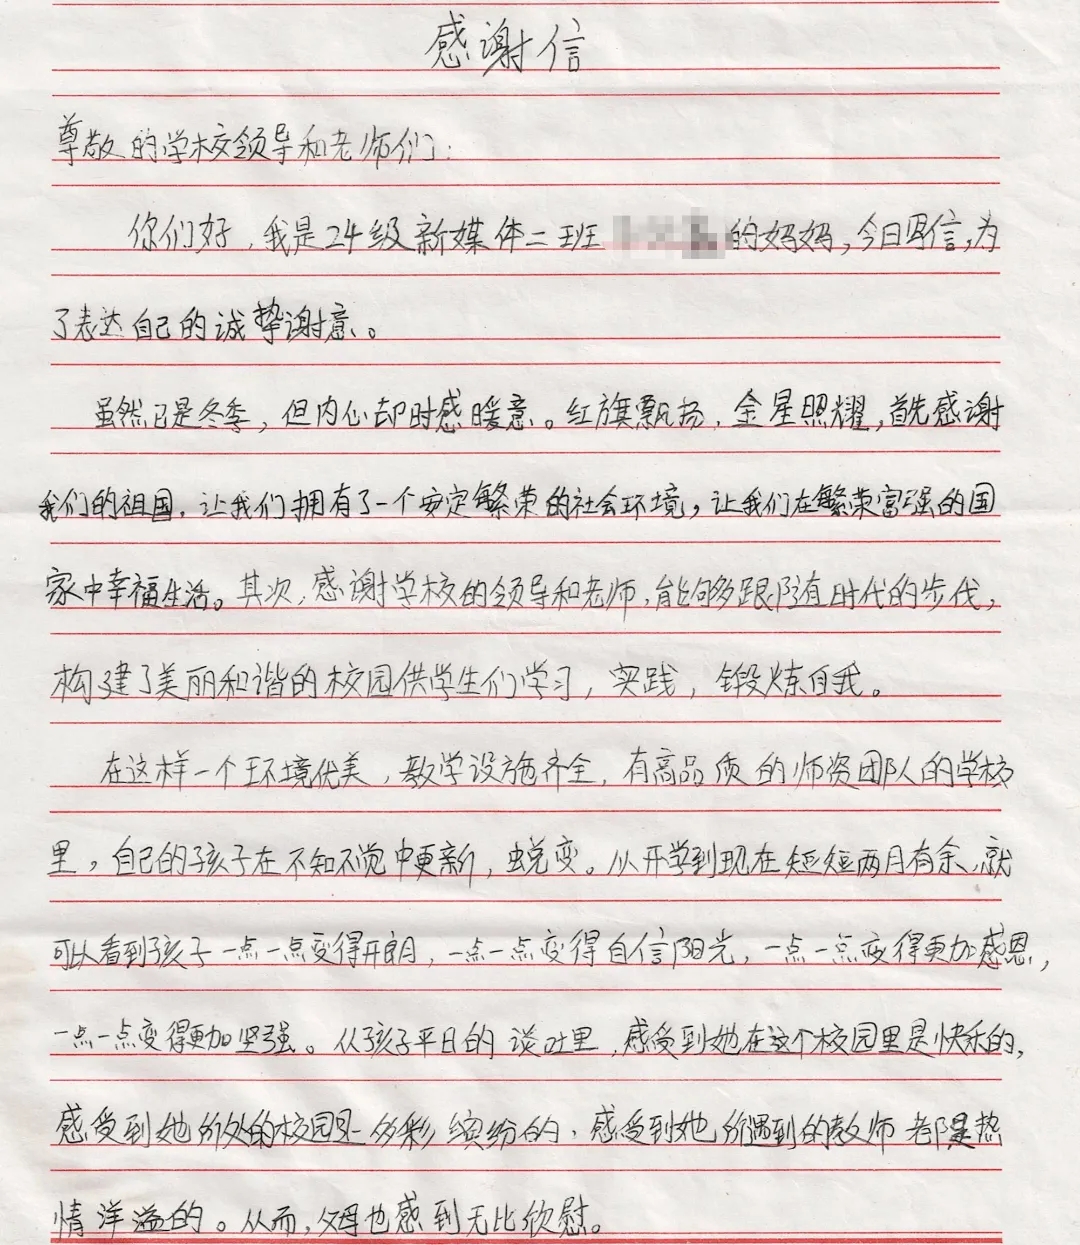 感谢信
尊敬的学校领导和老师们：
你们好，我是24级新媒体二班的妈妈，今日写信，为
了表达自己的诚挚谢意。
虽然已是冬季，但内心却时感暖意。红旗飘扬，金星照耀，首先感谢
我们的祖国，让我们拥有了一个安定繁荣的社会环境，让我们在繁荣富强的国
家中幸福生活。其次，感谢学校的领导和老师，能够跟随时代的步伐，
构建了美丽和谐的校园供学生们学习，实践，锻炼自我。
在这样一个环境优美，教学设施齐全，有高品质的师资团队的学校
里，自己的孩子在不知不觉中更新，蜕变。从开学到现在短短两月有余，就
可以看到孩子一点一点变得开朗，一点一点变得自信阳光，一点一点变得更加感恩，
一点一点变得更加坚强。从孩子平日的谈吐里，感受到她在这个校园里是快乐的，
感受到她所处的校园是多彩缤纷的，感受到她所遇到的教师都是热
情洋溢的。从而，父母也感到无比欣慰。